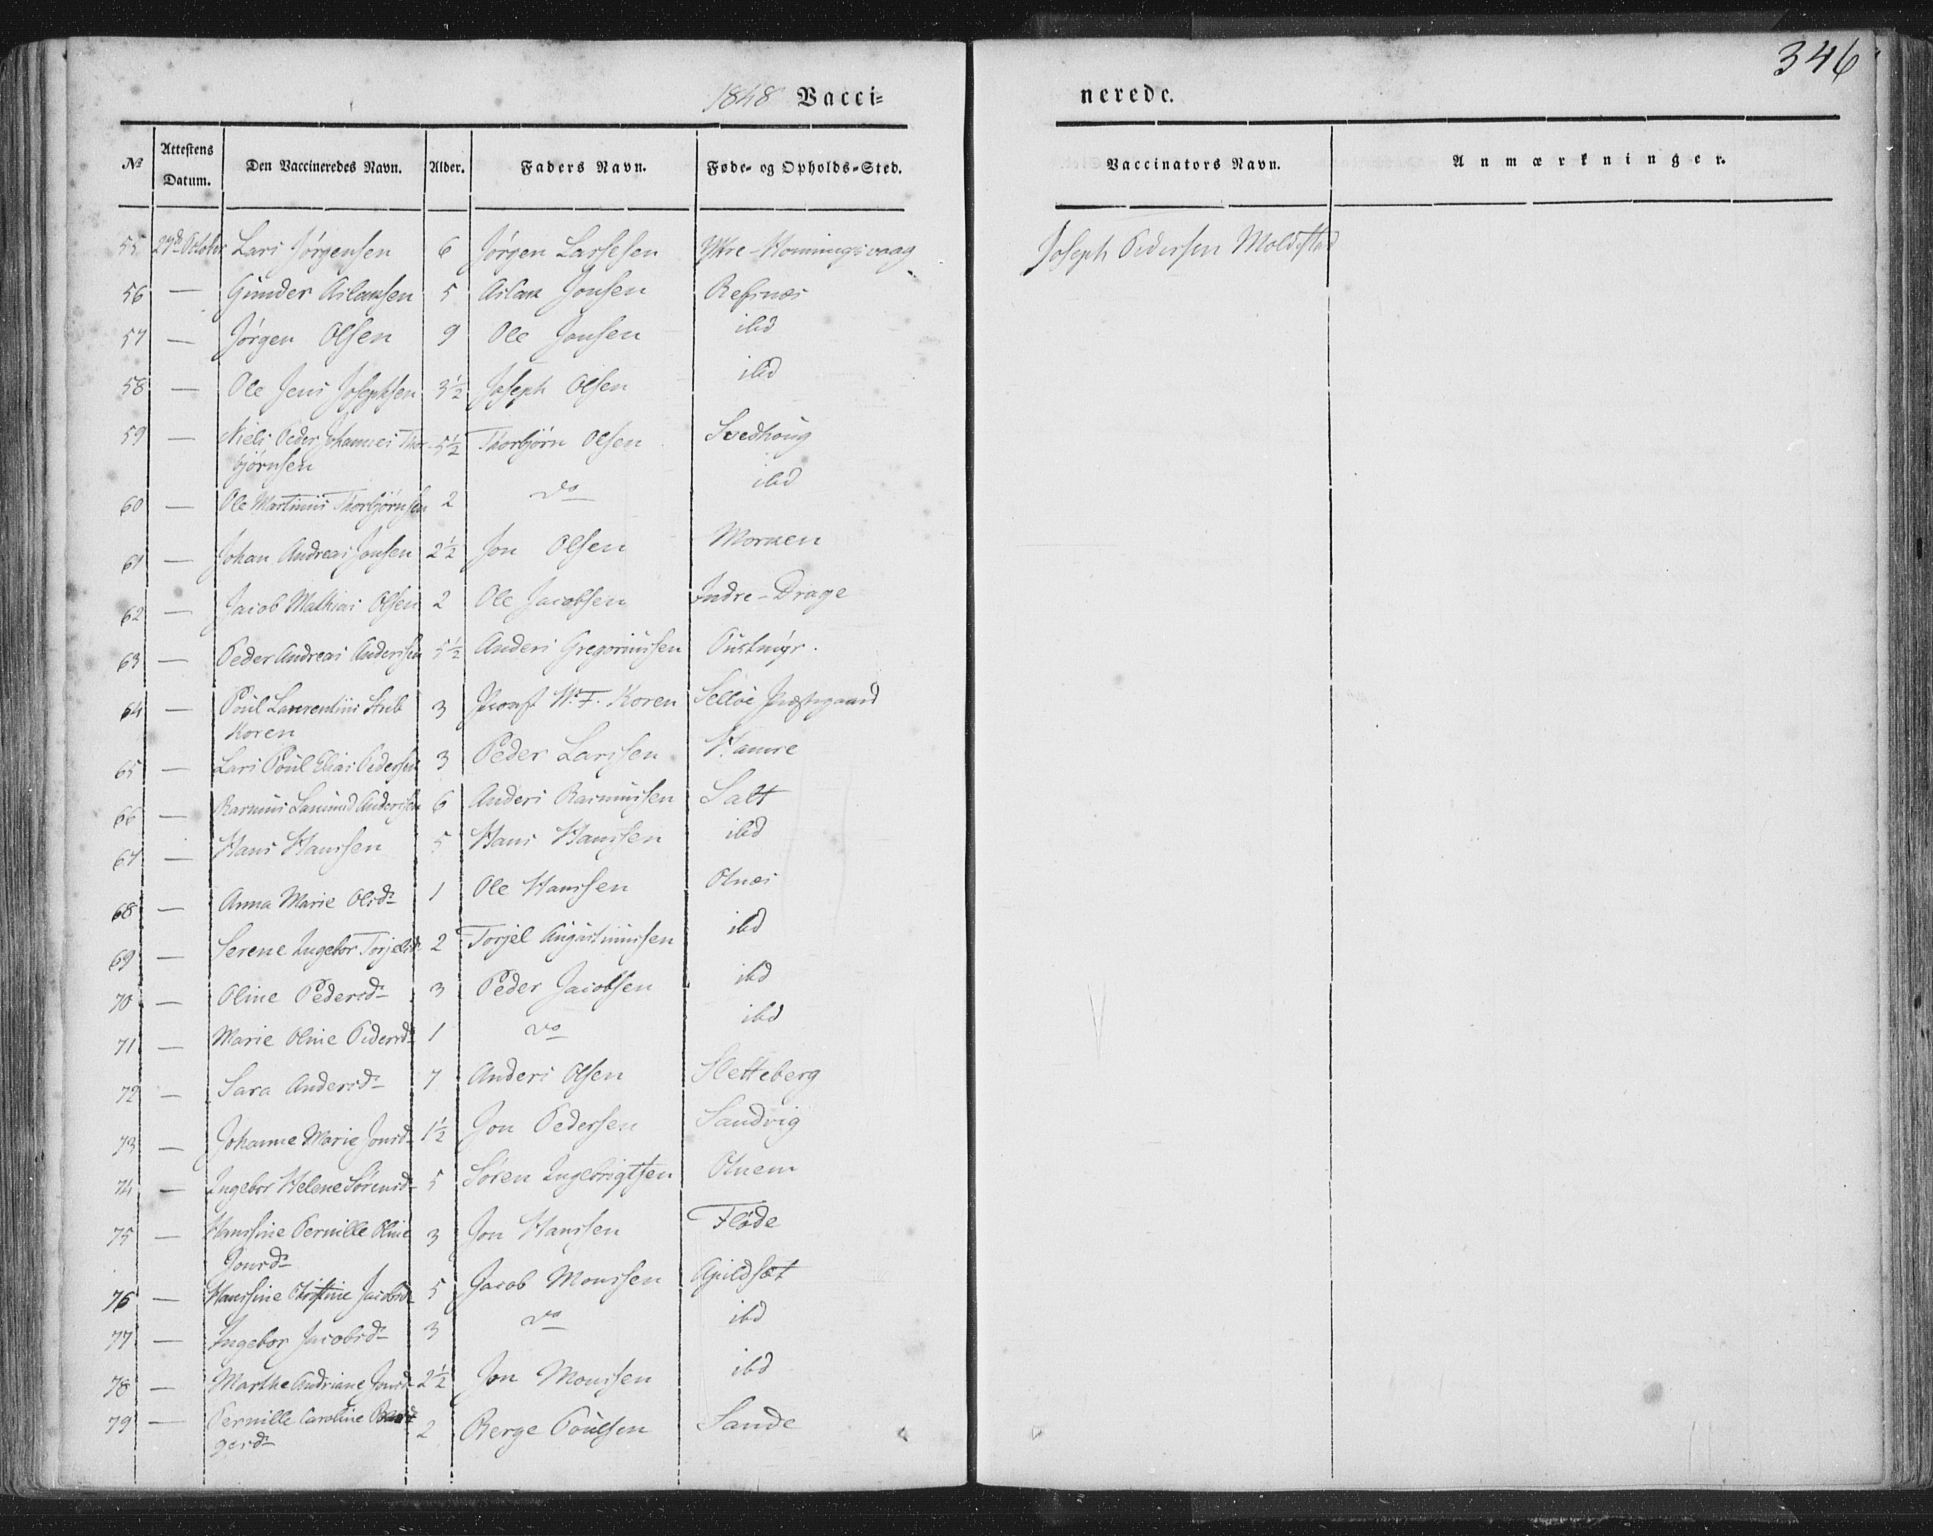 346
1848 Vacci=
nerede.
№ Attestens Datum. Den Vaccineredes Navn. Alder. Faders Navn. Føde- og Opholds-Sted. Vaccinators Navn. Anmærkninger.
55 27de October Lars Jørgensen 6 Jørgen Larssen Ytre-Honningsvaag Joseph Pedersen Moldestad
56 — Gunder Aslaksen 5 Aslak Jonsen Refsnæs
57 — Jørgen Olsen 9 Ole Jonsen ibd
58 — Ole Jens Josephsen 3½ Joseph Olsen ibd
59 — Niels Peder Johannes Thor- 5½ Thorbjørn Olsen
bjørnsen
60 — Ole Martinus Thorbjørnsen 2 do ibd
61 — Johan Andreas Jonsen 2½ Jon Olsen
62 — Jacob Mathias Olsen 2 Ole Jacobsen Indre-Drage
63 — Peder Andreas Anderssen 5½ Anders Gregoriussen
64 — Poul Laurentius Stub 3 Provst W. F. Koren Selløe Præstegaard
Koren
65 — Lars Poul Elias Pedersen 3 Peder Larssen Hamre
66 — Rasmus Anderssen 6 Anders Rasmussen Salt
67 — Hans Hanssen 5 Hans Hanssen ibd
68 — Anna Marie Olsdr 1 Ole Hanssen Otnes
69 — Serene Ingebor Torjelsdr 2 Torjel Augustinussen ibd
70 — Oline Pedersdr 3 Peder Jacobsen ibd
71 — Marie Oline Pedersdr 1 do ibd
72 — Sara Andersdr 7 Anders Olsen Sletteberg
73 — Johanne Marie Jonsdr 1½ Jon Pedersen Sandvig
74 — Ingebor Helene Sørensdr 5 Søren Ingebrigtsen Otnem
75 — Hanssine Pernille Oline 3 Jon Hanssen Fløde
Jonsdr
76 — Hanssine Christine Jacobsdr 5 Jacob Monssen Apildsæt
77 — Ingebor Jacobsdr 3 do ibd
78 — Marthe Andriane Jonsdr 2½ Jon Monssen ibd
79 — Pernille Caroline 2 Berge Poulsen Sande
gesdr